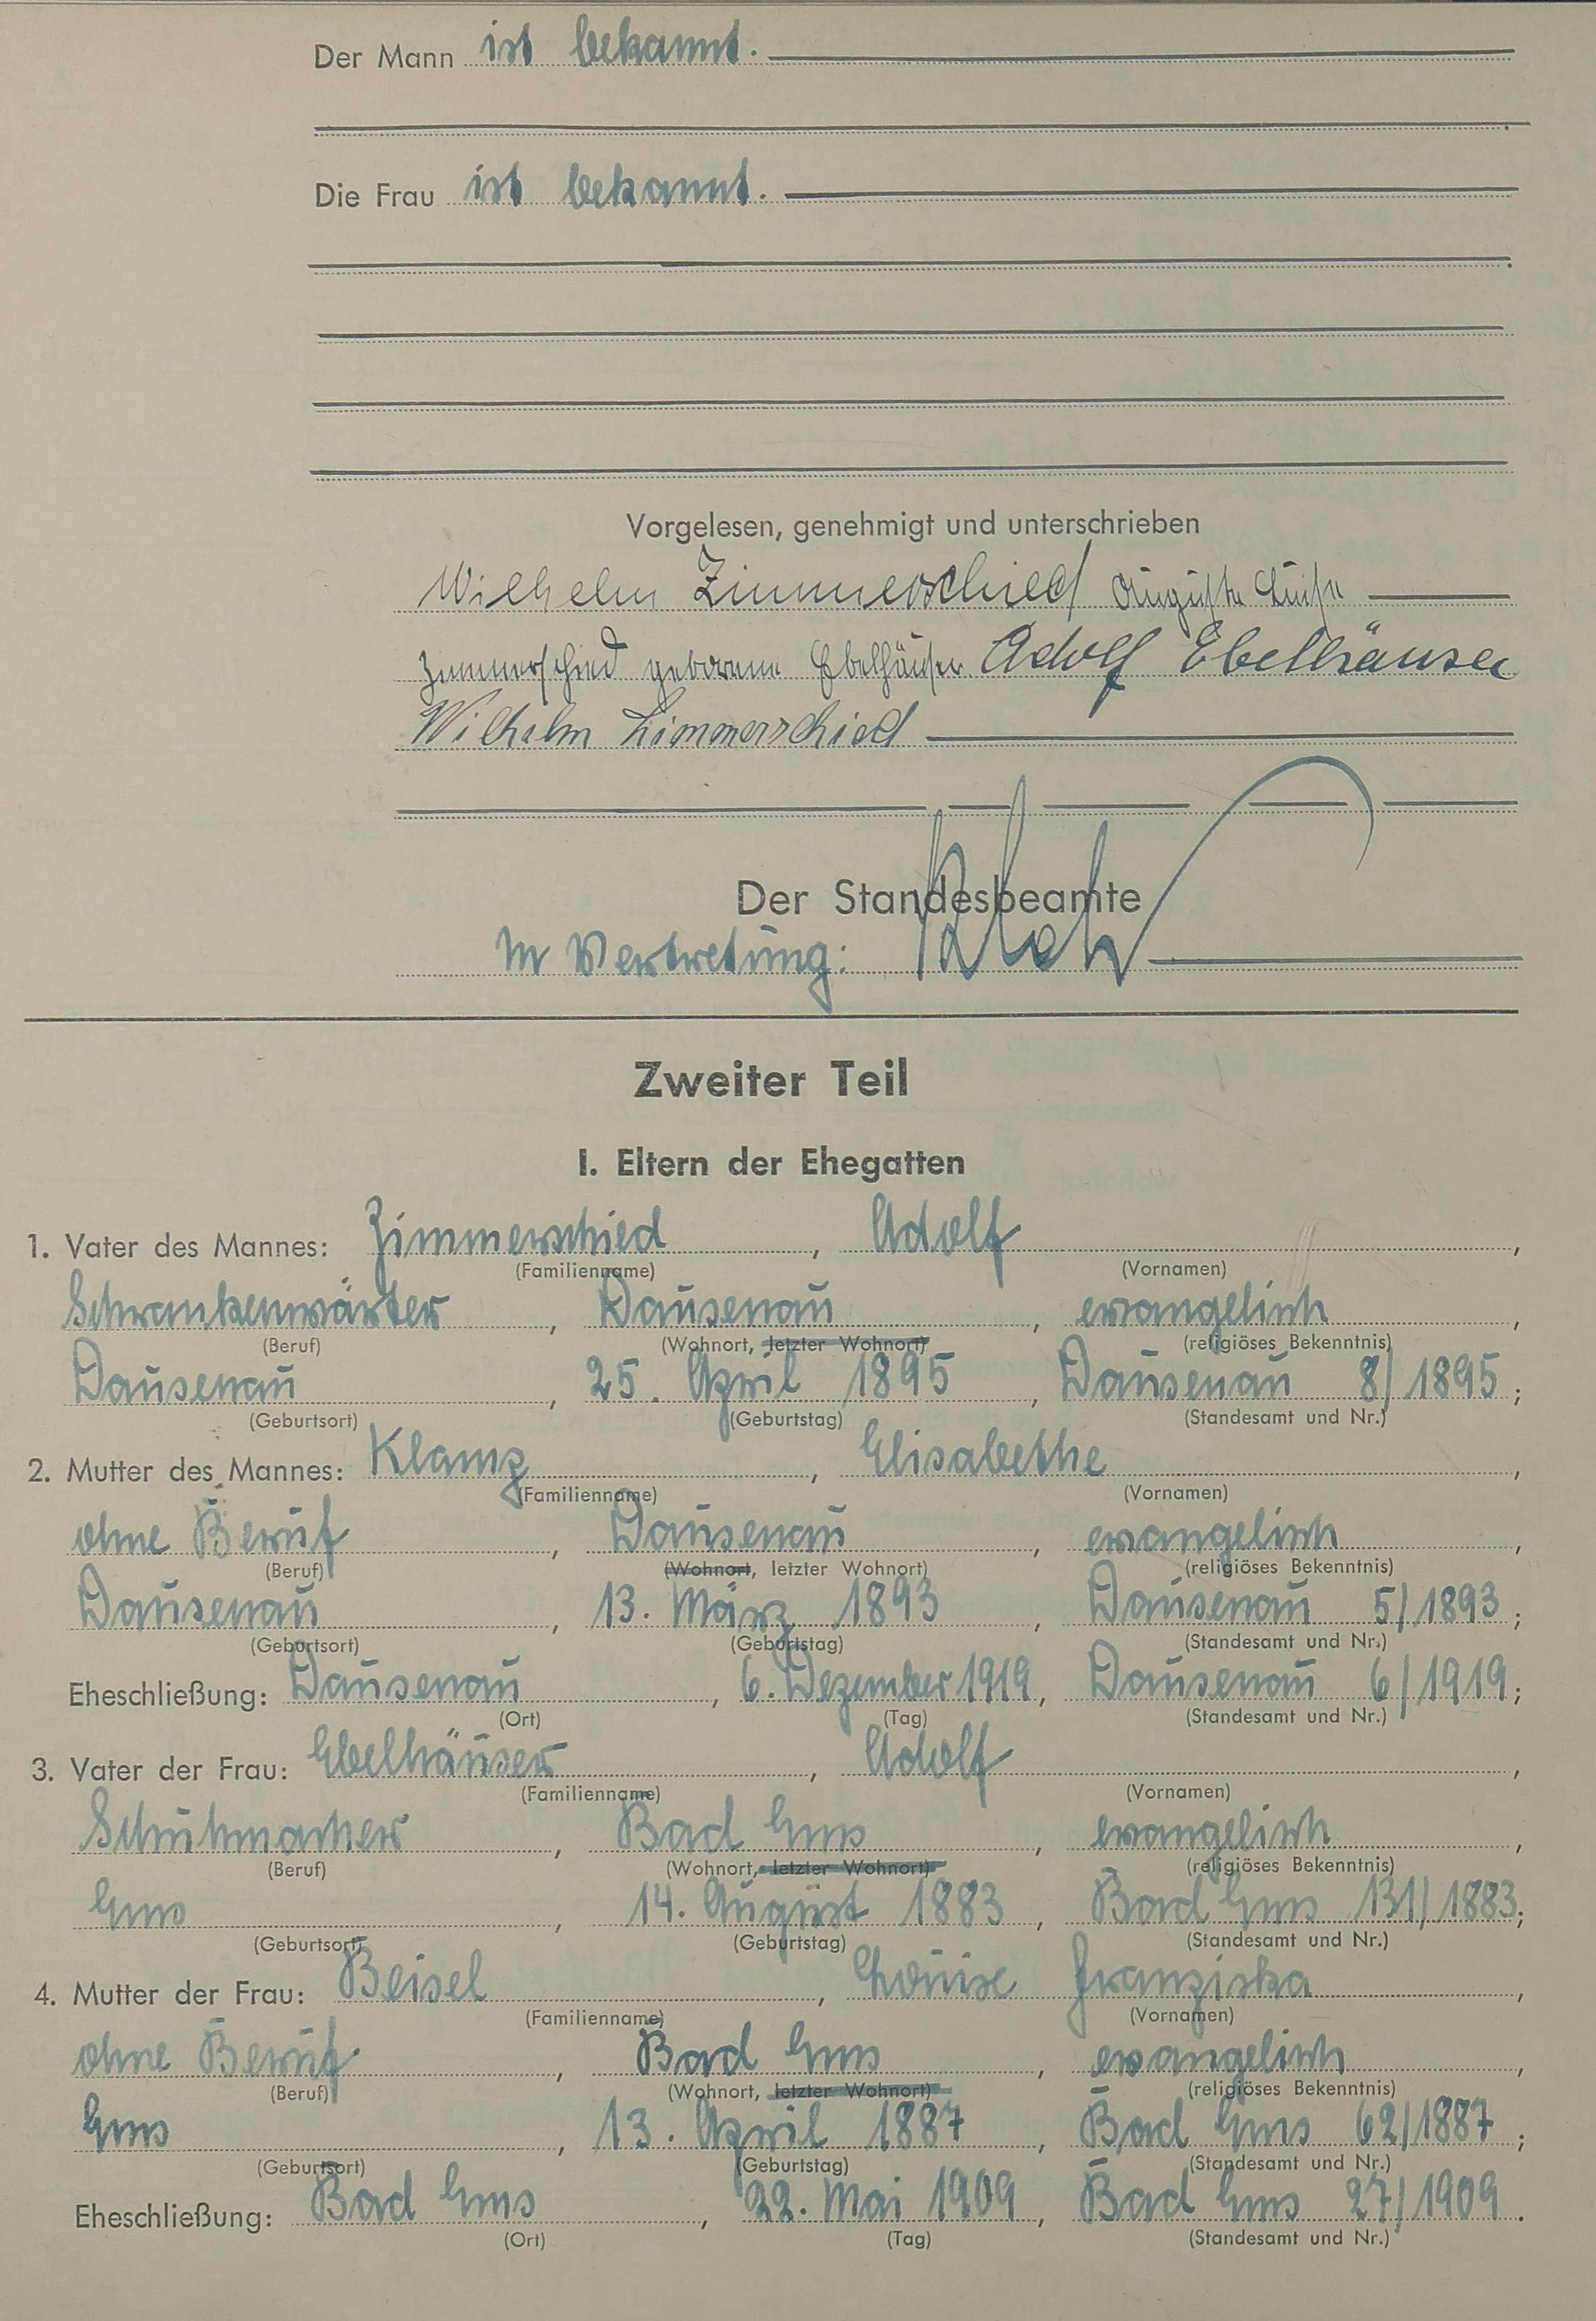 Der Mann ist bekannt.
Die Frau ist bekannt.
Vorgelesen, genehmigt und unterschrieben
Wilhelm Zimmerschied Auguste Luise
Zimmerschied geborene Ebelhäuser Adolf Ebelhäuser
Wilhelm Zimmerschied
Der Standesbeamte
In Vertretung:
Zweiter Teil
I. Eltern der Ehegatten
1. Vater des Mannes: Zimmerschied, Adolf,
(Familienname) (Vornamen)
Schrankenwärter, Dausenau, evangelisch,
(Beruf) (Wohnort, letzter Wohnort) (religiöses Bekenntnis)
Dausenau, 25. April 1895, Dausenau 8/1895;
(Geburtsort) (Geburtstag) (Standesamt und Nr.)
2. Mutter des Mannes: Klamp, Elisabethe,
(Familienname) (Vornamen)
ohne Beruf, Dausenau, evangelisch,
(Beruf) (Wohnort, letzter Wohnort) (religiöses Bekenntnis)
Dausenau, 13. März 1893, Dausenau 5/1893;
(Geburtsort) (Geburtstag) (Standesamt und Nr.)
Eheschließung: Dausenau, 6. Dezember 1919, Dausenau 6/1919;
(Ort) (Tag) (Standesamt und Nr.)
3. Vater der Frau: Ebelhäuser, Adolf,
(Familienname) (Vornamen)
Schuhmacher, Bad Ems, evangelisch,
(Beruf) (Wohnort, letzter Wohnort) (religiöses Bekenntnis)
Ems, 14. August 1883, Bad Ems 131/1883;
(Geburtsort) (Geburtstag) (Standesamt und Nr.)
4. Mutter der Frau: Beisel, Louise Franziska,
(Familienname) (Vornamen)
ohne Beruf, Bad Ems, evangelisch,
(Beruf) (Wohnort, letzter Wohnort) (religiöses Bekenntnis)
Ems, 13. April 1887, Bad Ems 62/1887;
(Geburtsort) (Geburtstag) (Standesamt und Nr.)
Eheschließung: Bad Ems, 22. Mai 1909, Bad Ems 27/1909.
(Ort) (Tag) (Standesamt und Nr.)